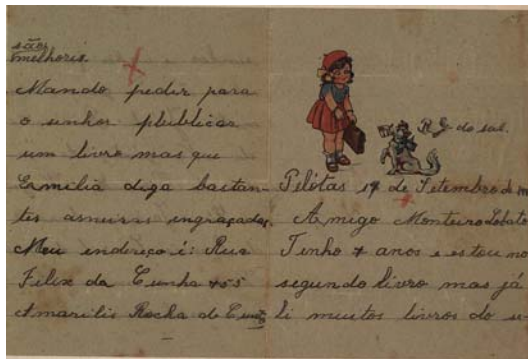 são
melhoris.
Mando pedir para
o senhor plublicar
um livro mas que
Ermilia diga bastan-
tes engraçadas.
Meu endereço é: Rua
Felix da Cunha 755
Amarilis Rocha de
R. G. do sul.
Pelótas 17 de Setembro de
Amigo Monteiro Lobato
Tenho 7 anos e estou no
segundo livro mas já
li muitos livros do